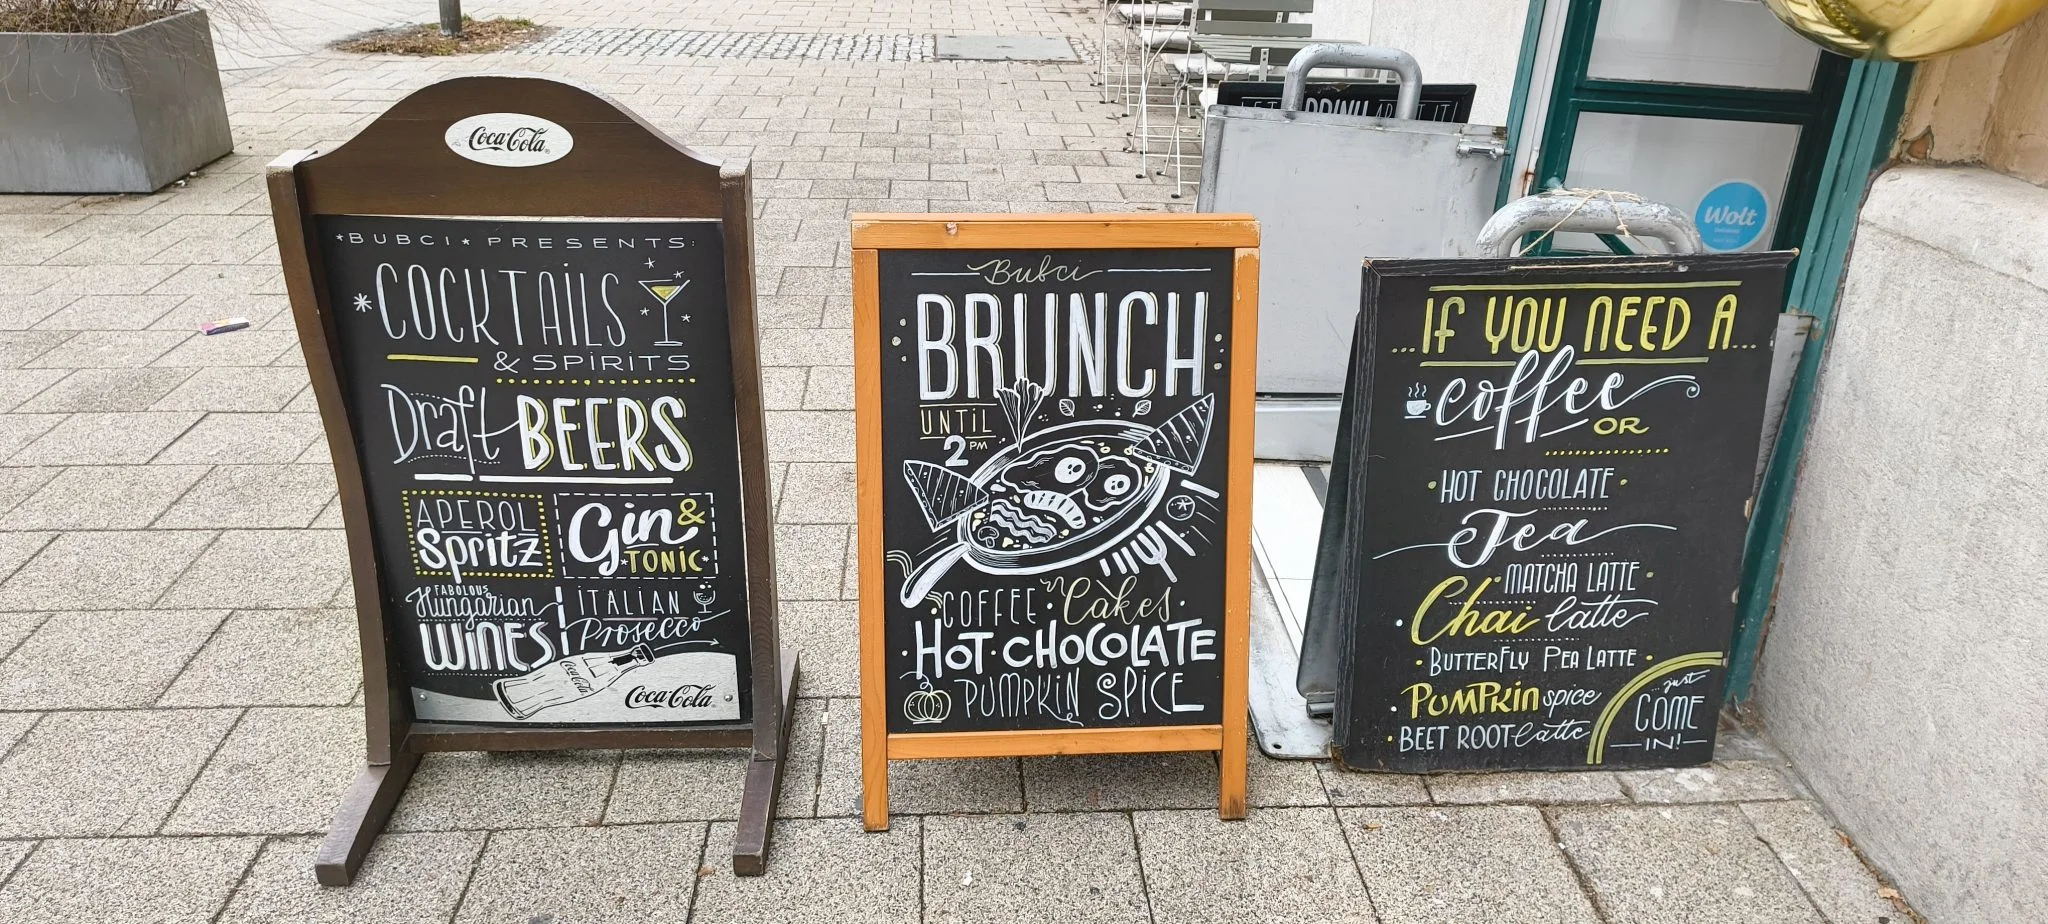 Coca-Cola
BUBCI PRESENTS:
COCKTAILS
& SPIRITS
Draft BEERS
APEROL
Spritz
Gin &
TONIC
FABOLOUS
Hungarian
WINES
ITALIAN
Prosecco
Coca-Cola
Coca-Cola
Bubci
BRUNCH
UNTIL
2 PM
COFFEE · Cakes ·
· HOT · CHOCOLATE
PUMPKIN SPICE
DRINK ABOUT IT!
Wolt
...IF YOU NEED A...
coffee
OR
· HOT CHOCOLATE ·
Tea
· MATCHA LATTE ·
· Chai latte
· BUTTERFLY PEA LATTE ·
· PUMPKIN spice
· BEET ROOT Latte
...just
COME
IN!